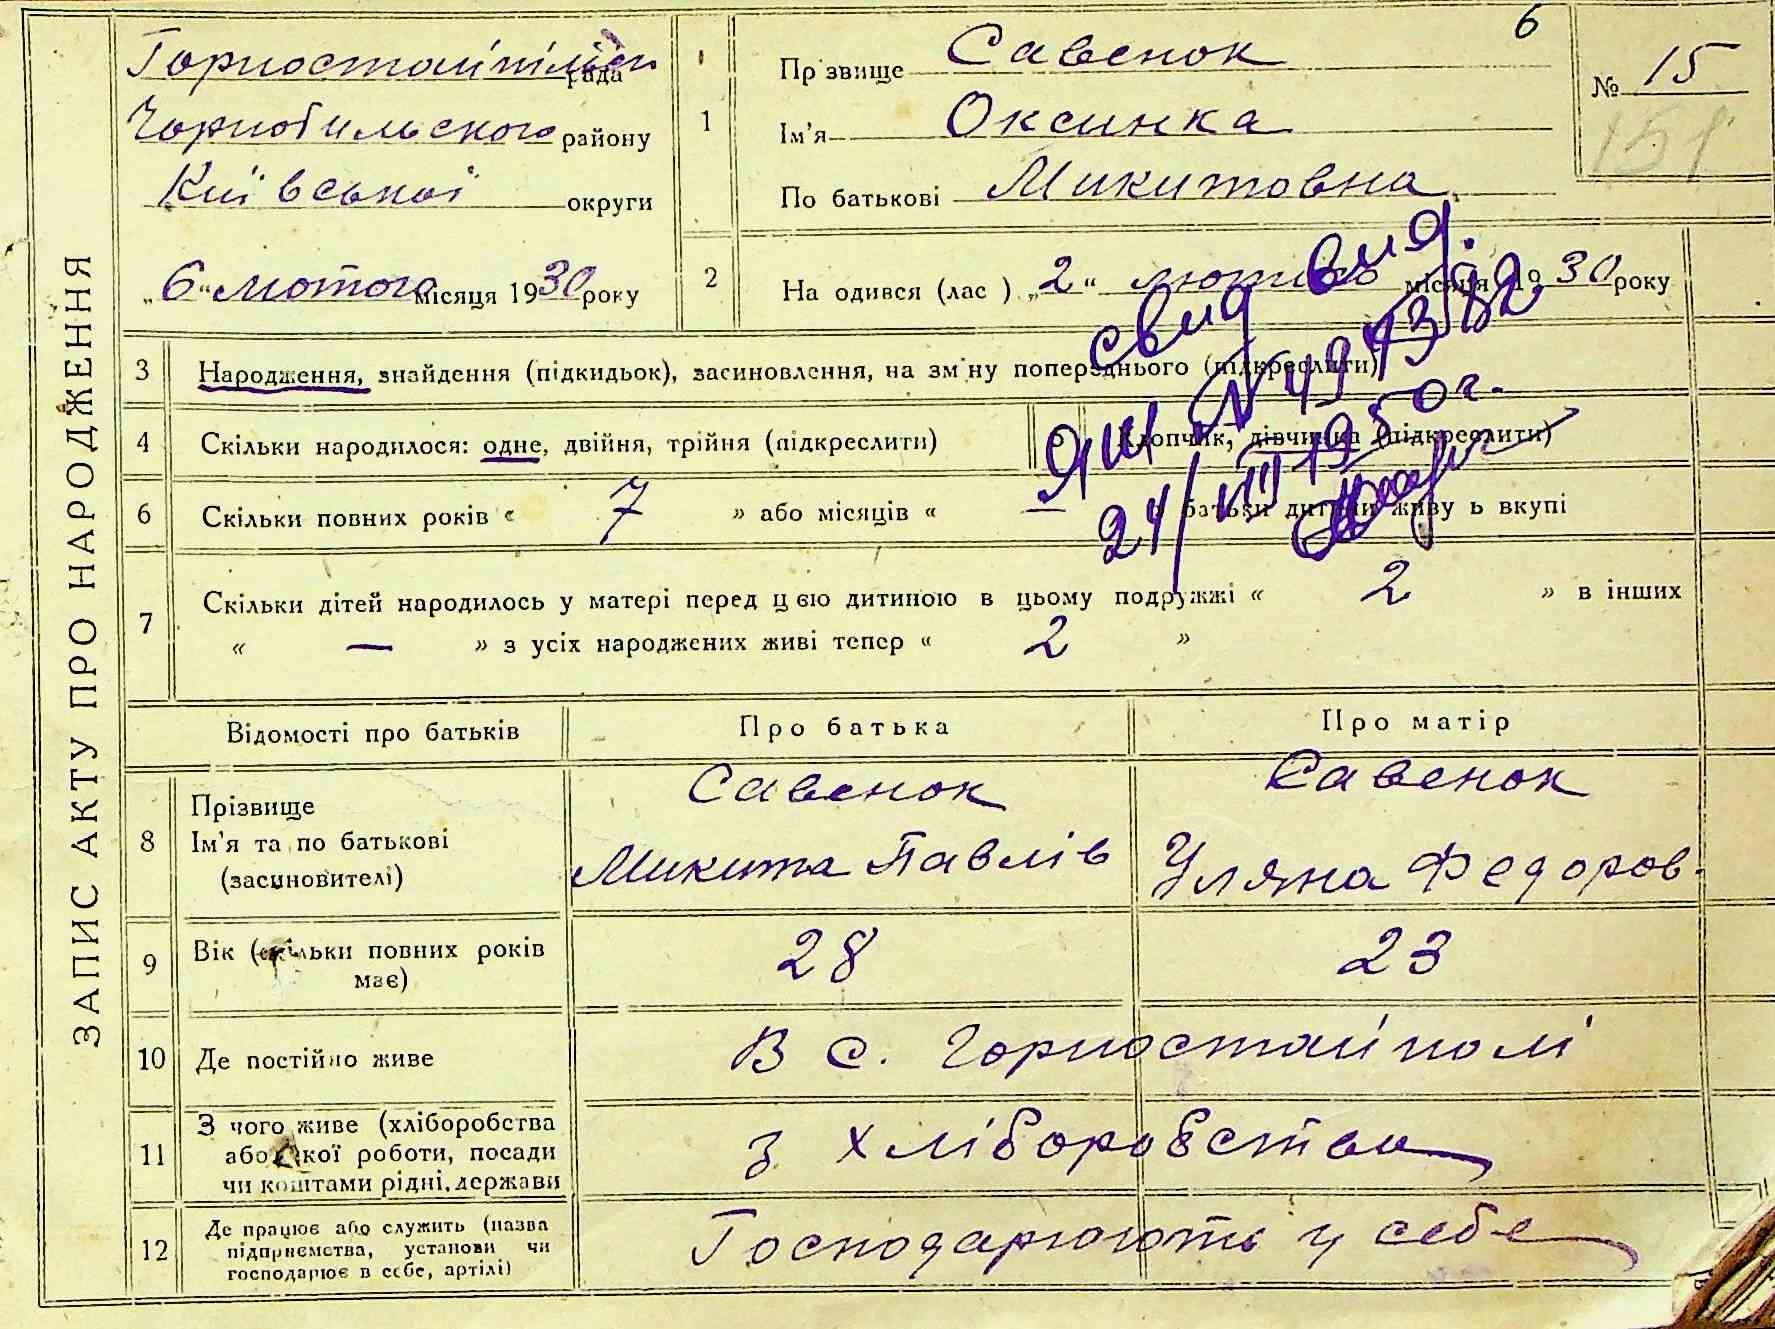 ЗАПИС АКТУ ПРО НАРОДЖЕННЯ
6
Горностайпільсь рада
Чорнобильского району
Київської округи
„6“ лютого місяця 1930 року
№ 15
151
1
Прзвище Савенок
Ім'я Оксинка
По батькові Микитовна
2 На одився (лас ) „2“ лютого місяця 1930 року
свид выд.
ЯШ N 4943782
24/VIII 1950 г.
3 Народження, знайдення (підкидьок), засиновлення, на зміну попереднього (підкреслити)
4 Скільки народилося: одне, двійня, трійня (підкреслити)
5 Хлопчик, дівчинка (підкреслити)
6 Скільки повних років « 7 » або місяців « — » батьки дитини живуь вкупі
7 Скільки дітей народилось у матері перед цією дитиною в цьому подружжі « 2 » в інших
« — » з усіх народжених живі тепер « 2 »
Відомості про батьків Про батька Про матір
8 Прізвище
Ім'я та по батькові
(засиновителі)
Савенок
Микита Павлів
Савенок
Уляна Федоров.
9 Вік (скільки повних років має) 28 23
10 Де постійно живе В с. Горностайполі
11 З чого живе (хліборобства
або якої роботи, посади
чи коштами рідні, держави
з хліборобства
12 Де працює або служить (назва
підприємства, установи чи
господарює в себе, артілі)
Господарюють у себе